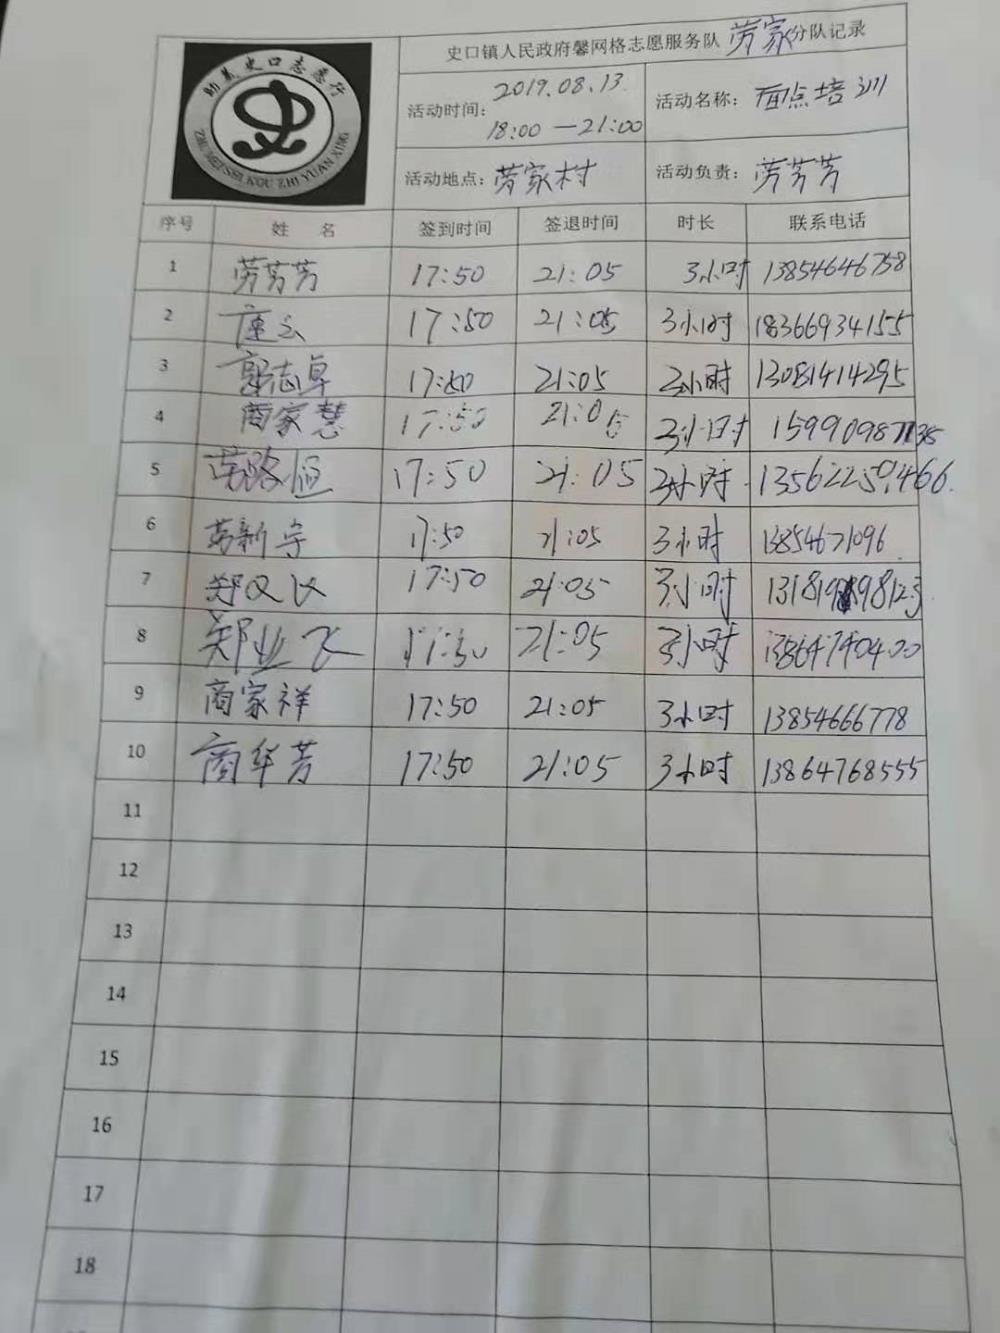 史口镇人民政府馨网格志愿服务队劳家分队记录
助美史口志愿行
ZHUMEI SHI KOU ZHI YUAN XING
活动时间：2019.08.13. 18:00—21:00
活动名称：面点培训
活动地点：劳家村
活动负责：劳芳芳
序号 姓 名 签到时间 签退时间 时长 联系电话
1 劳芳芳 17:50 21:05 3小时 13854646758
2 17:50 21:05 3小时 18366934155
3 郭志卓 17:50 21:05 3小时 13081414295
4 商家慧 17:50 21:05 3小时
5 劳路恒 17:50 21:05 3小时 13562250466.
6 劳新宇 17:50 21:05 3小时 13854671096
7 17:50 21:05 3小时
8 郑业飞 17:50 21:05 3小时
9 商家祥 17:50 21:05 3小时 13854666778
10 商华芳 17:50 21:05 3小时 13864768555
11
12
13
14
15
16
17
18